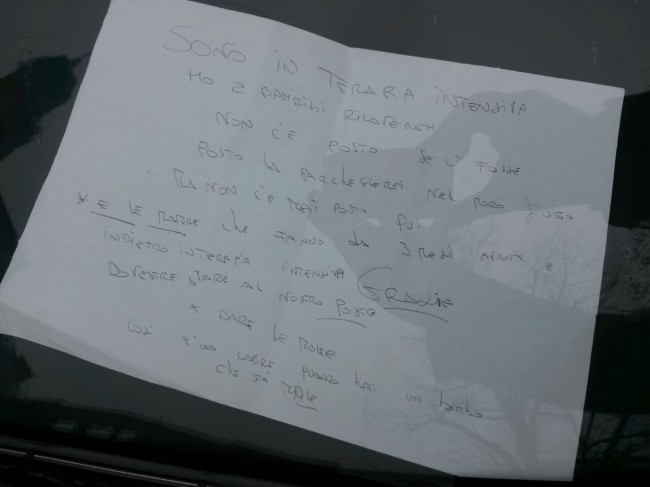 SONO IN TERAPIA INTENSIVA
HO 2 BAMBINI RICOVERATI
NON C'E POSTO SE CI FOSSE
POSTO LA PARCHEGGEREI NEL POSTO GIUSTO
MA NON C'E MAI POSTO POI
* E LE MAMME CHE FANNO DA 3 MESI AVANTI E
INDIETRO IN TERAPIA INTENSIVA GRAZIE
DOVESTE STARE AL NOSTRO POSTO
X DARE LE MULTE
COSI QUANDO HAI UN BIMBO
CHE STA MALE